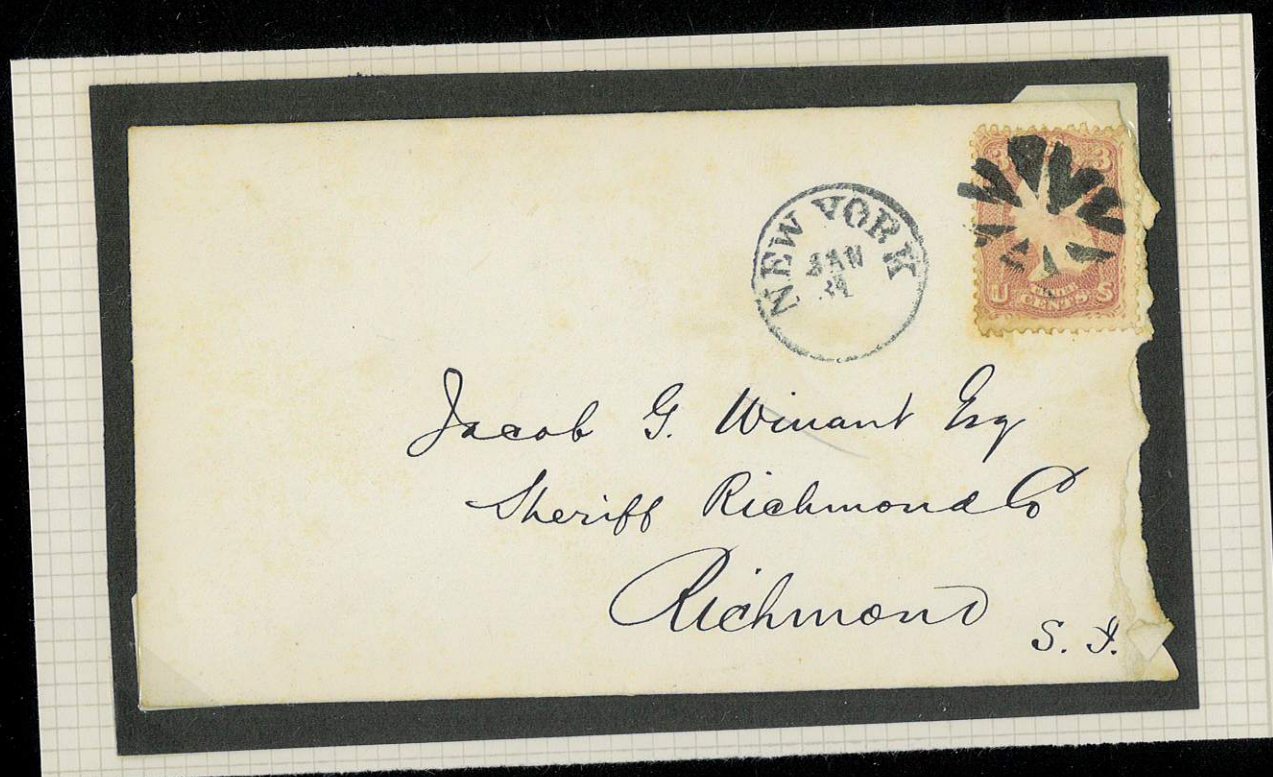 NEW YORK
JAN
3 3
U THREE S
CENTS
Jacob G. Winant Esq
Sheriff Richmond Co
Richmond
S. I.